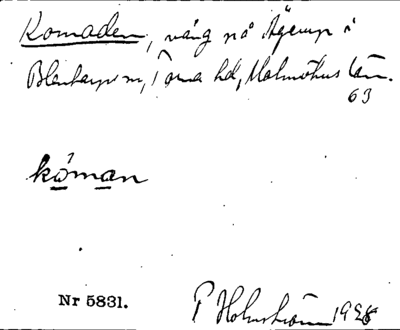 Komaden, vång på Ågerup i
Blentarps sn, Torna hd, Malmöhus län.
63
kóman
Nr 5831.
P Holmström 1928